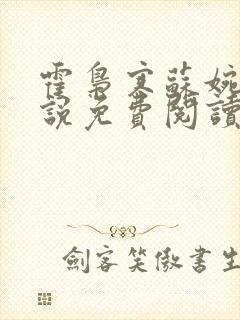 霍梟寒蘇婉
說免費閱讀
劍客笑傲書生